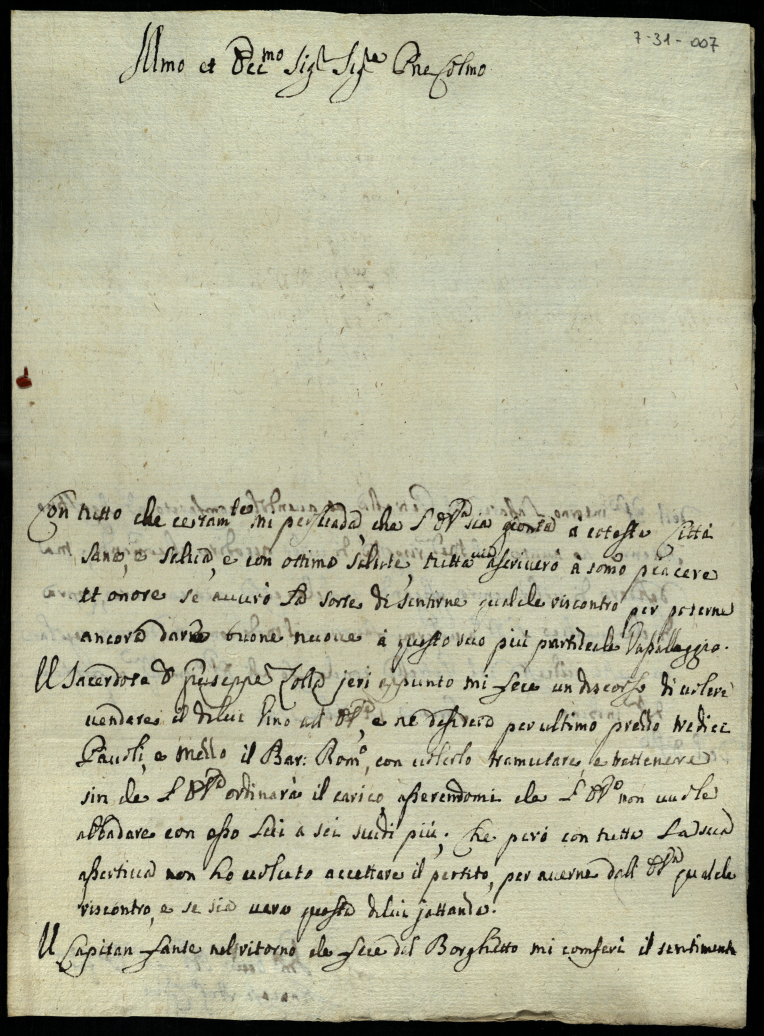 7-31-007
Illmo et Sig.r Sig.re Pne Colmo
Con tutto che certam.te mi persuada, che sia gionta à cotesta Città
sana, e salva, e con ottima salute, tutta via ascriverò à somo piacere
et onore se averò la sorte di sentirne qualche riscontro per poterne
ancora darne buone nuove à questo suo più parziale Vassallaggio.
Il Sacerdote D Giuseppe jeri appunto mi fece un discorso di volere
vendare il di lui vino e ne desidera per ultimo prezzo tredici
Pauoli, e mezzo il Bar: Rom.o, con volerlo tramutare, e
sin che ordinarà il carico, asserendomi che non vuole
abbadare con esso lui à sei scudi più; Che però con tutta la sua
assertiva non hò voluto accettare il partito, per averne dall qualche
riscontro, e se sia vera questa di lui jattanza.
Il Capitan Sante nel ritorno che fece dal Borghetto mi conferì il sentimento